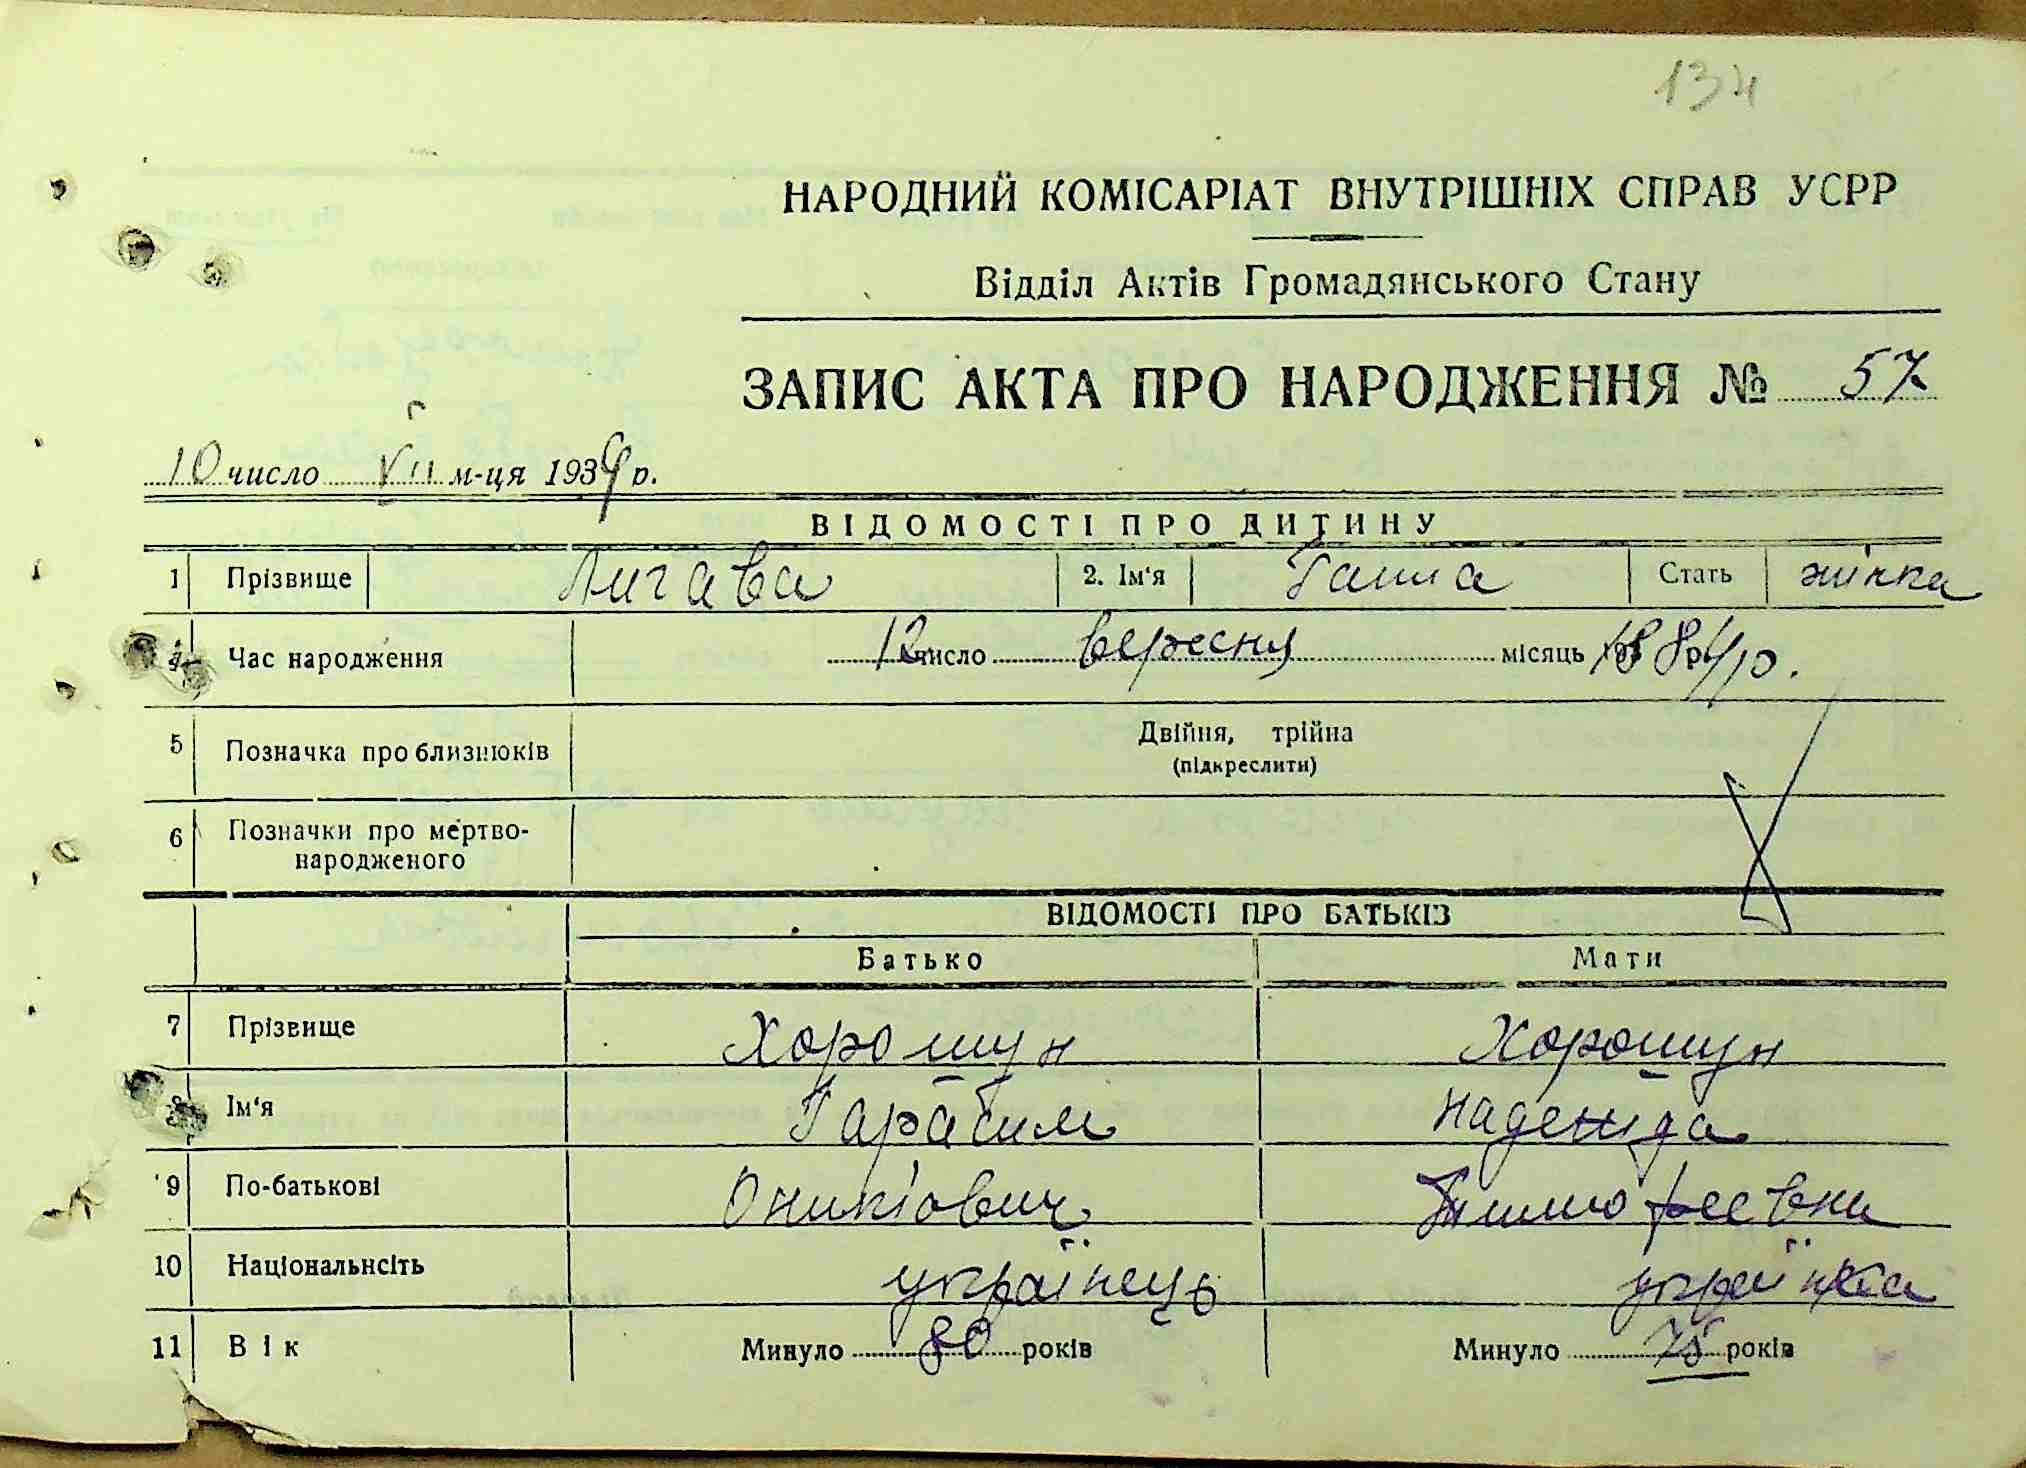 134
НАРОДНИЙ КОМІСАРІАТ ВНУТРІШНІХ СПРАВ УСРР
Відділ Актів Громадянського Стану
ЗАПИС АКТА ПРО НАРОДЖЕННЯ № 57
10 число VII м-ця 1934 р.
ВІДОМОСТІ ПРО ДИТИНУ
1 Прізвище Лигава 2. Ім'я Ганна Стать жінка
4 Час народження 12 число вересня місяць 1884 р.
5 Позначка про близнюків Двійня, трійна
(підкреслити)
6 Позначки про мертво-
народженого
ВІДОМОСТІ ПРО БАТЬКІВ
Батько Мати
7 Прізвище Хорошун Хорошун
8 Ім'я Гарасим Надежда
9 По-батькові Оникіович Тимофеевна
10 Національнсіть українець українка
11 Вік Минуло 80 років Минуло 75 років